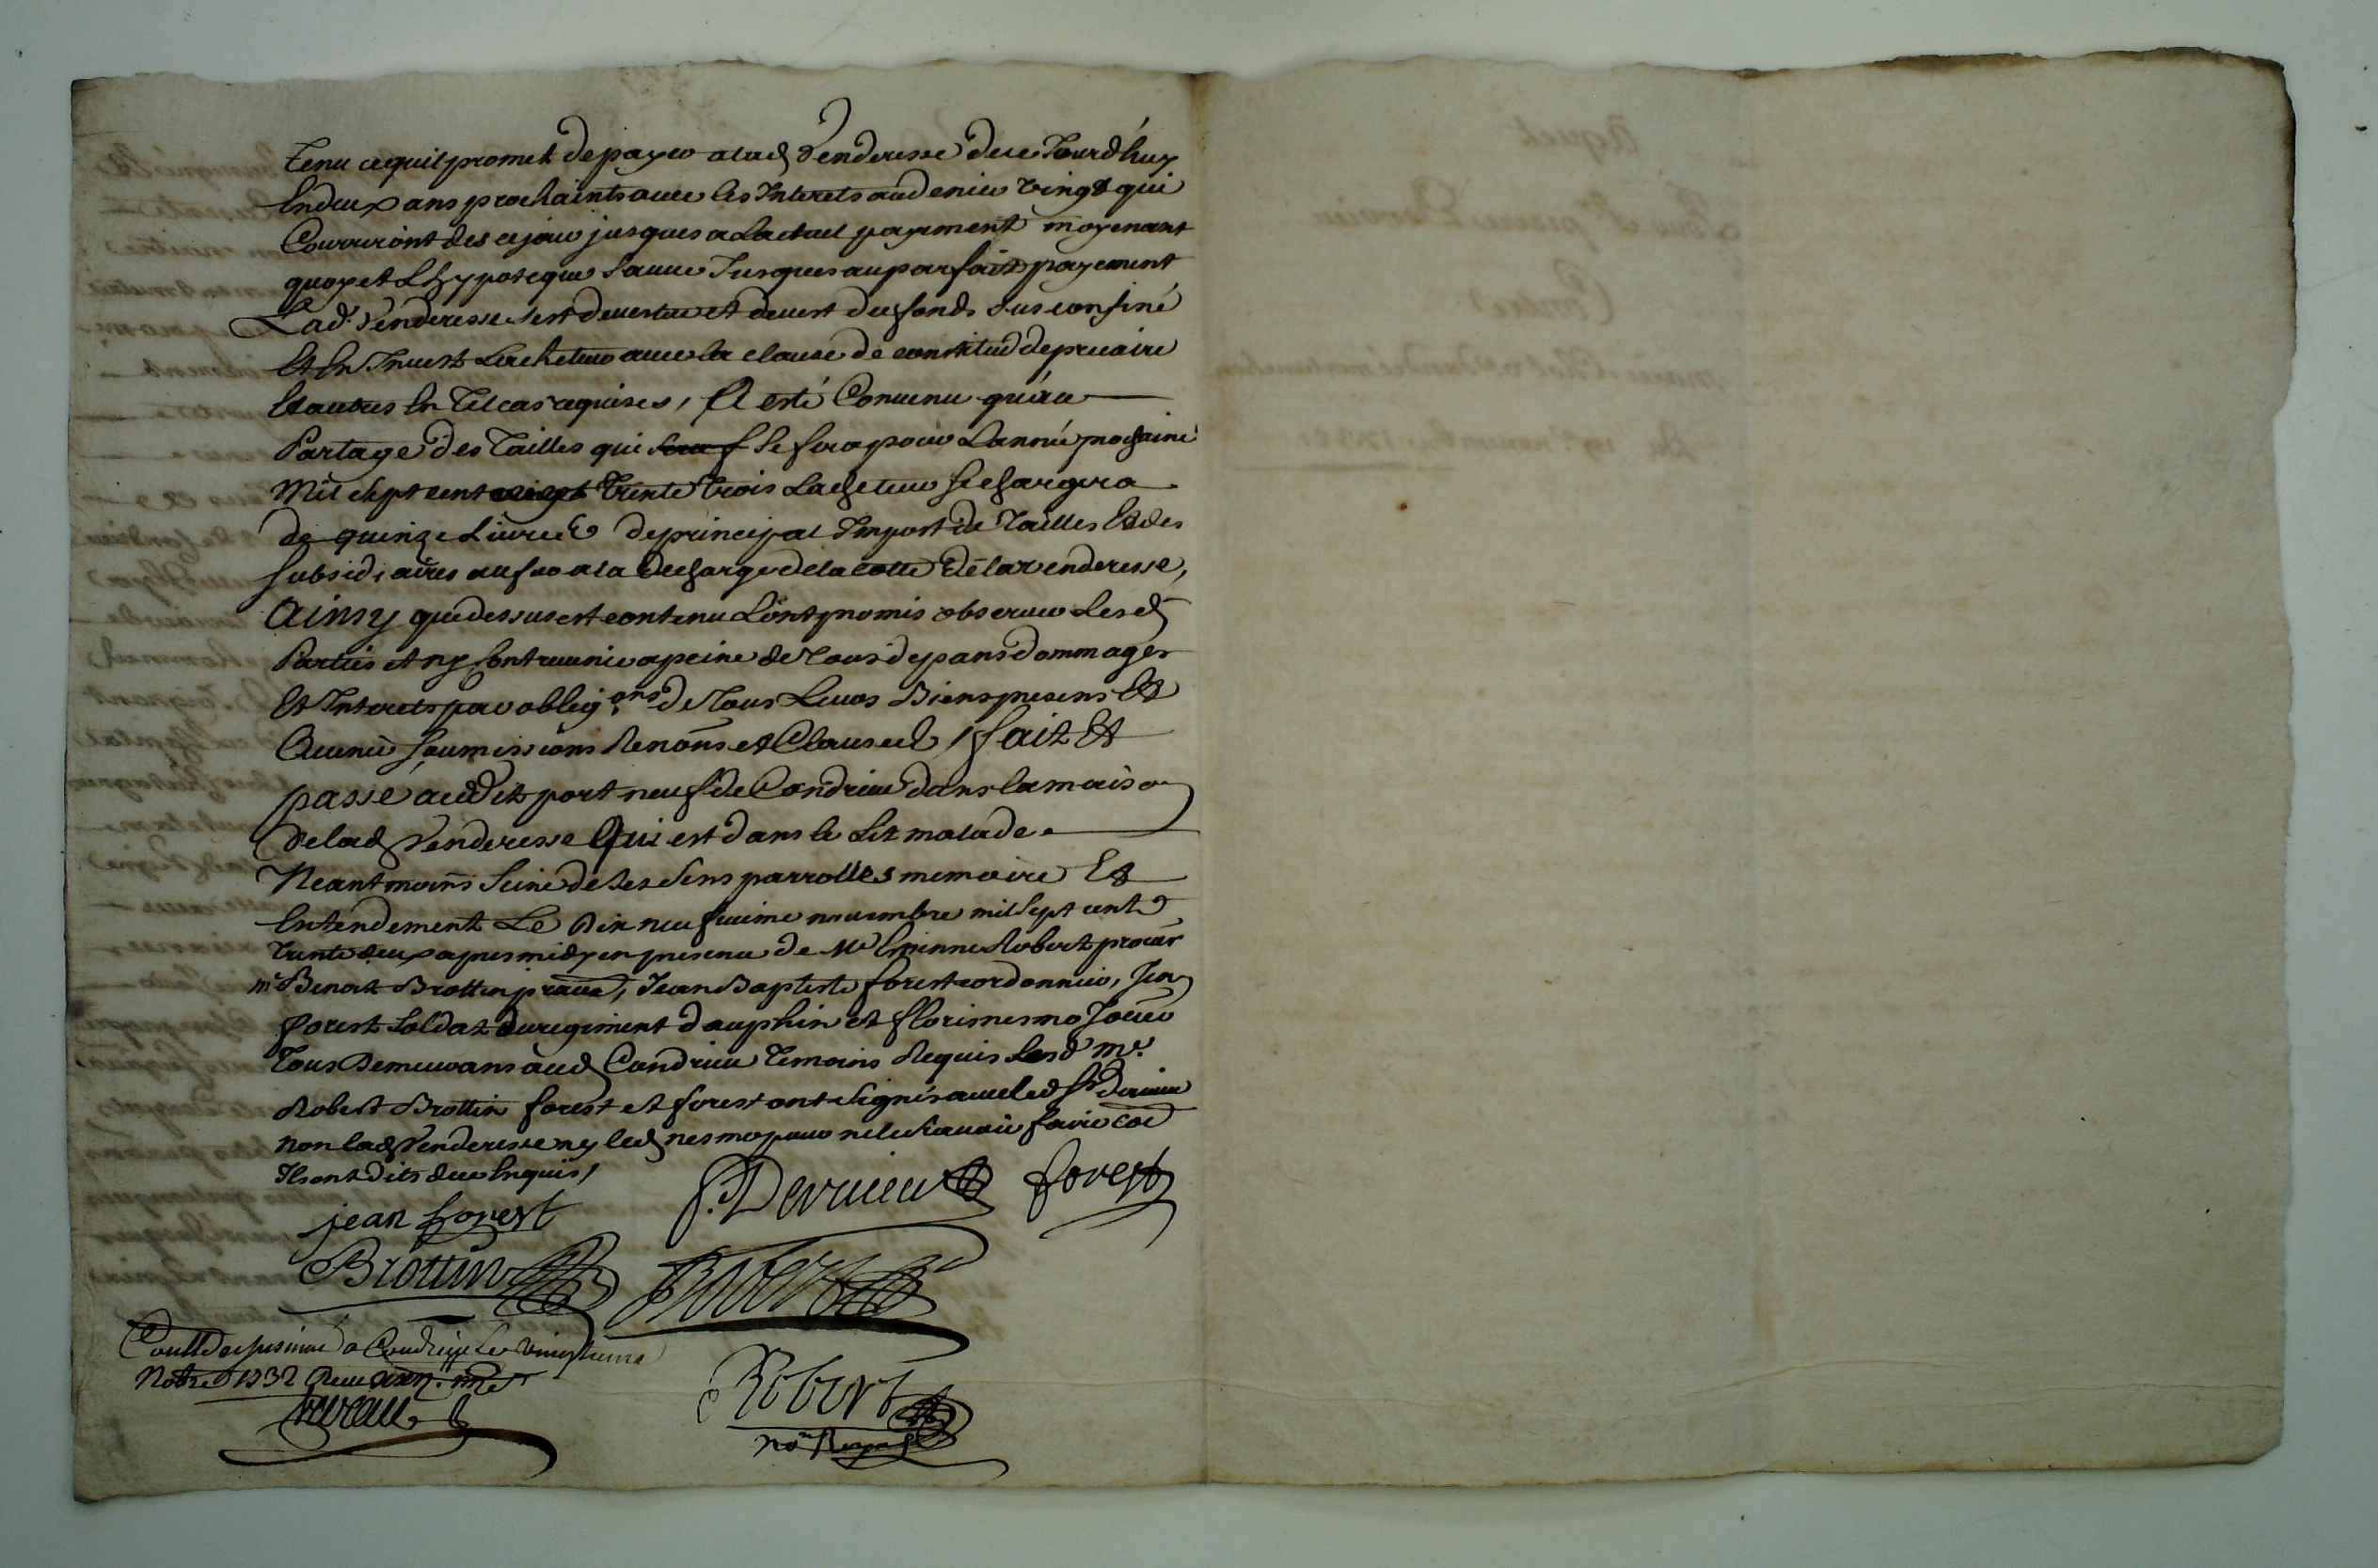 tenu a quil promet de payer a lad. Venderesse de ce Jourd'huy
En deux ans prochaints avec les Interets au denier vingt qui
Courriront des ce jour jusques a Lactuel payement moyenant
quoy et Lhypoteque Sauve Jusques au parfait payement
Lad. Venderesse sest devestue et devest du fonds sus confiné
Et En Invest Lacheteur avec la clause de constitud de precaire
Et autres En tel cas requises, Il a esté Convenu qu'au
Partage Des Tailles qui se fera pour Lannée prochaine
Mil sept cent Trente trois Lacheteur se chargera
de quinze Livres de principal Import de Tailles Et des
subsidiaires au fur a la decharge de la cotte de la venderesse,
Ainsy que dessus est contenu Lont promis observer Lesd.
Parties et ny Contrevenir a peine de Tous depans Dommages
Et Interets par obligons de Tous Leurs Biens presens Et
Avenir Soumissions Renons et Clauses / fait Et
passé audit port neuf de Condrieu dans la maison
De lad. Venderesse Qui est dans le Lit malade
Neantmoins Saine de ses Sens parrolles memoire Et
Entendement Le Dix neufvieme novembre mil Sept cent
trente deux apres midy en presence de Me Etienne Robert procur
me Benoit Brottin, Jean Baptiste forest cordonnier, Jean
forest Soldat du regiment dauphin et
Tous Demeurans aud. Condrieu Temoins Requis Lesd. me.
Robert Brottin forest et forest ont Signés avec led. Sr Dervieu
non lad. Venderesse ny led. nesmo pour ne le scavoir faire
Ils ont dits de ce Enquis /
jean forest
S. Dervieu forest
Brottin Robert
Conllé a Condrieu Le vingtieme
Nobre 1732 Receu
Robert
nore Royal